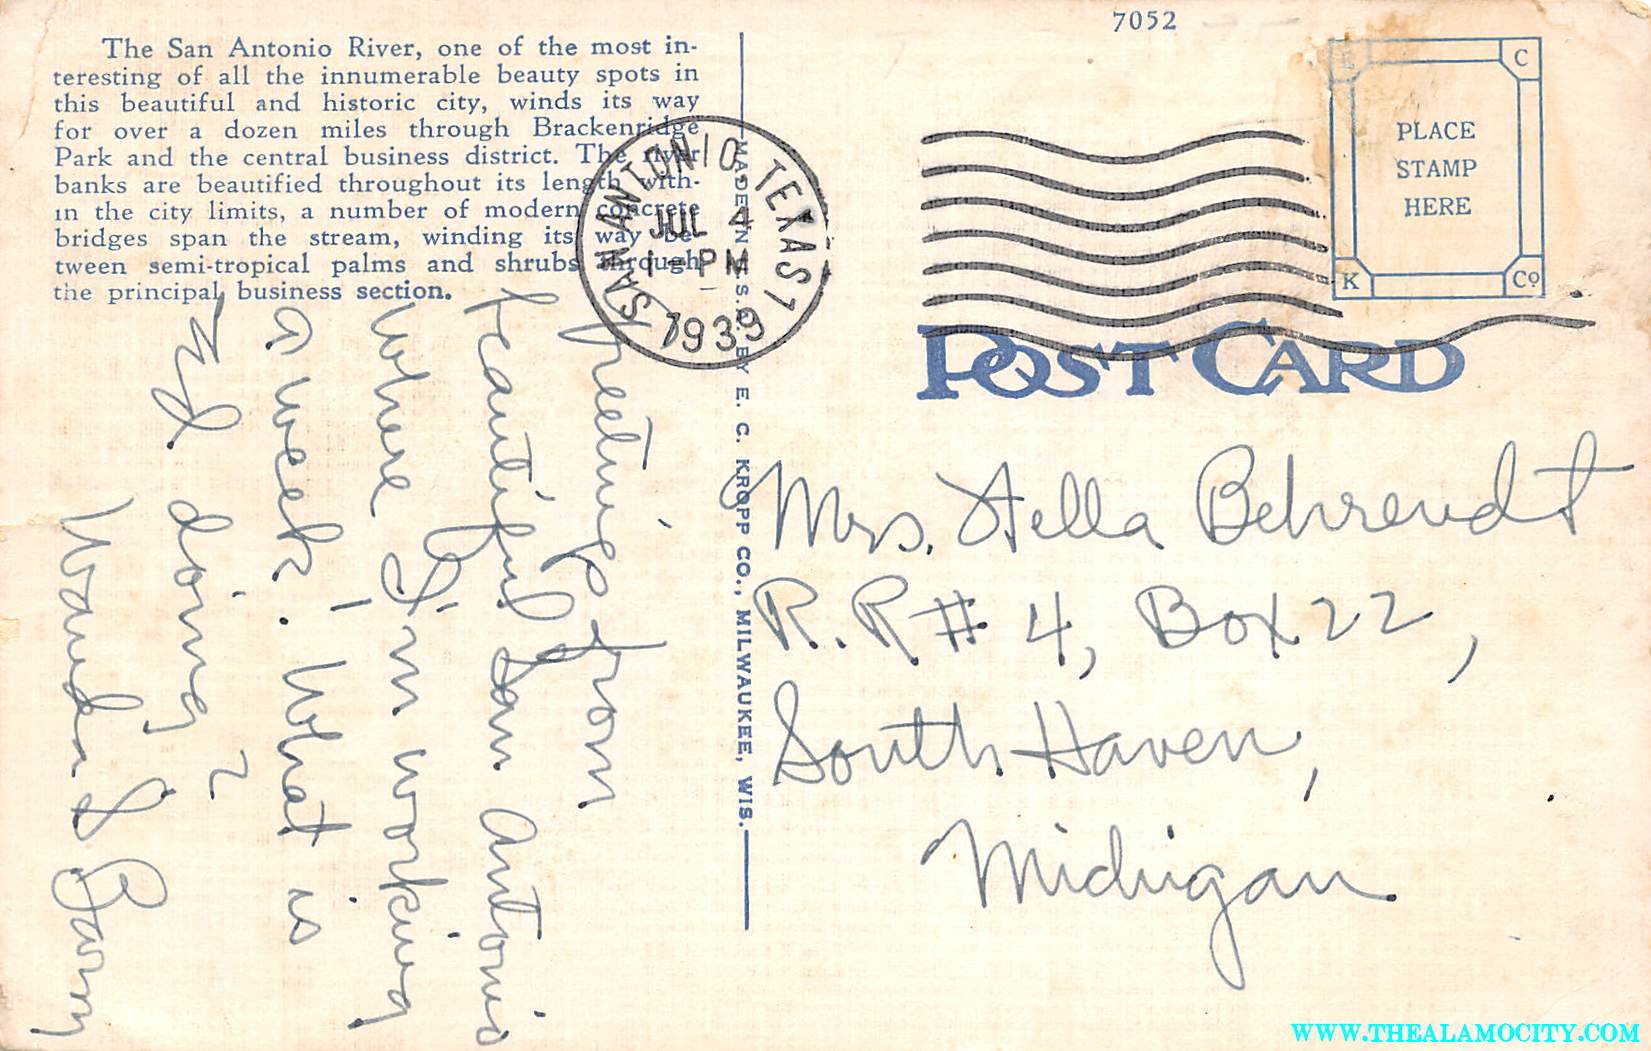 7052
The San Antonio River, one of the most in-
teresting of all the innumerable beauty spots in
this beautiful and historic city, winds its way
for over a dozen miles through Brackenridge
Park and the central business district. The river
banks are beautified throughout its length with-
in the city limits, a number of modern concrete
bridges span the stream, winding its way be-
tween semi-tropical palms and shrubs through
the principal business section.
SAN ANTONIO, TEXAS 1
JUL 4
1-PM
1939
MADE IN U.S.A. BY E. C. KROPP CO., MILWAUKEE, WIS.
E C
PLACE
STAMP
HERE
K Co
POST CARD
Greetings from
beautiful San Antonio
where I'm working
a week. What is
Ed doing?
Mrs. Stella Behrendt
R.R # 4, Box 22,
South Haven,
Michigan
WWW.THEALAMOCITY.COM